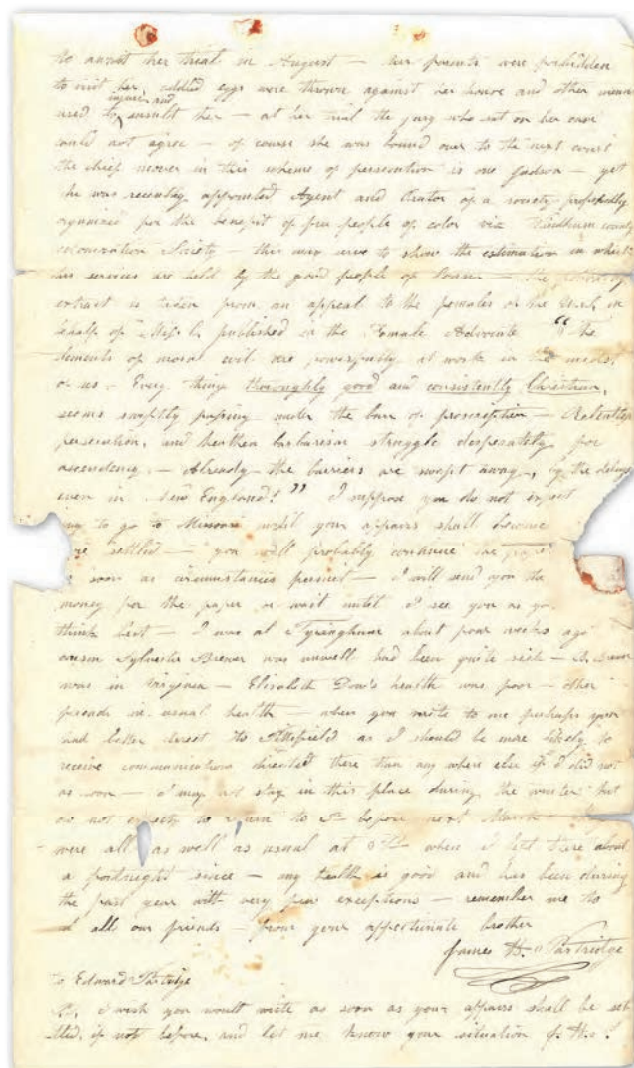 to await her trial in August — her parents were forbidden
to visit her, addled eggs were thrown against her house and other means
injure and
used to insult her — at her trial the jury who sat on her case
could not agree — of course she was bound over to the next court
the chief mover in this scheme of persecution is one Judson — yet
he was recently appointed Agent and Orator of a society professedly
organized for the benefit of free people of color viz Windham county
colonization Society — this may serve to show the estimation in which
his services are held by the good people of — the following
extract is taken from an appeal to the females of the in
behalf of Miss C. published in the Female Advocate " The
elements of moral evil are powerfully at work in the midst
of us — Every thing thoroughly good and consistently Christian,
seems swiftly passing under the ban of proscription —
persecution, and heathen barbarism struggle desperately for
ascendency — Already the barriers are swept away, by the deluge
even in New England! " I suppose you do not expect
to go to Missouri until your affairs shall become
settled — you will probably continue the paper
soon as circumstances permit — I will send you the
money for the paper or wait until I see you as yo
think best — I was at Tyringham about four weeks ago
cousin Sylvester Brewer was unwell had been quite sick — Brewer
was in Virginia — Elizabeth Dow's health was poor — other
friends in usual health — when you write to me perhaps you
had better direct to Pittsfield as I should be more likely to
receive communications directed there than any where else if I did not
as soon — I may not stay in this place during the winter but
do not expect to return to before next March
were all as well as usual at when I left there about
a fortnight since — my health is good and has been during
the past year with very few exceptions — remember me to
all our friends — from your affectionate brother
James H. Partridge
to Edward Partridge
I wish you would write as soon as your affairs shall be set
tled, if not before, and let me know your situation &c.